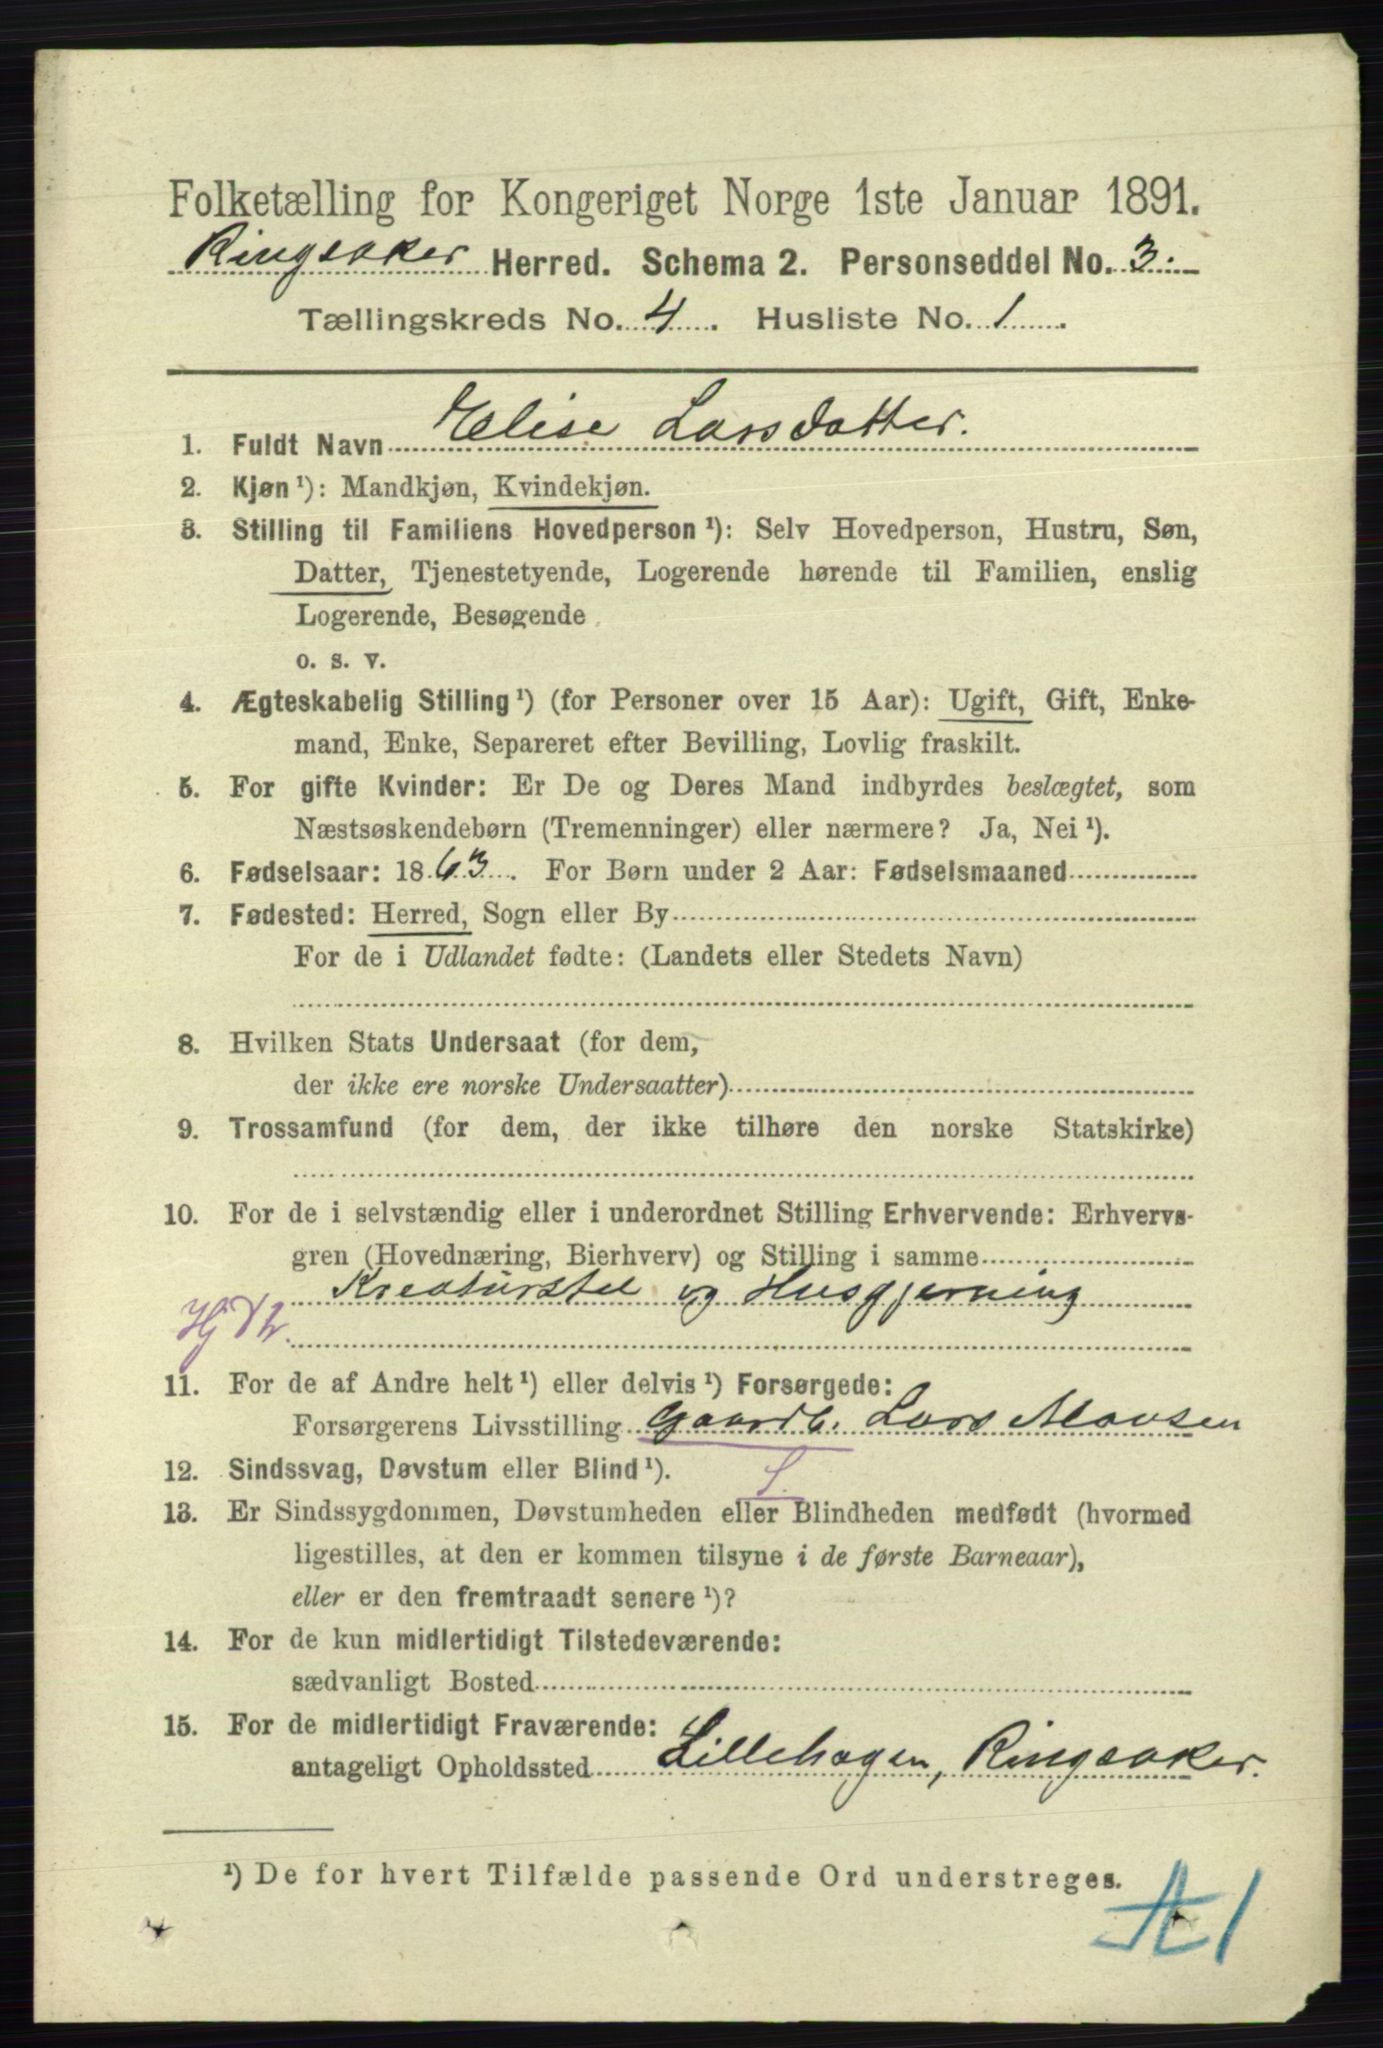 Folketælling for Kongeriget Norge 1ste Januar 1891.
Ringsaker Herred. Schema 2. Personseddel No. 3.
Tællingskreds No. 4. Husliste No. 1.
1. Fuldt Navn Elise Larsdatter.
2. Kjøn ¹): Mandkjøn, Kvindekjøn.
3. Stilling til Familiens Hovedperson ¹): Selv Hovedperson, Hustru, Søn,
Datter, Tjenestetyende, Logerende hørende til Familien, enslig
Logerende, Besøgende
o. s. v.
4. Ægteskabelig Stilling ¹) (for Personer over 15 Aar): Ugift, Gift, Enke-
mand, Enke, Separeret efter Bevilling, Lovlig fraskilt.
5. For gifte Kvinder: Er De og Deres Mand indbyrdes beslægtet, som
Næstsøskendebørn (Tremenninger) eller nærmere? Ja, Nei ¹).
6. Fødselsaar: 1863. For Børn under 2 Aar: Fødselsmaaned
7. Fødested: Herred, Sogn eller By
For de i Udlandet fødte: (Landets eller Stedets Navn)
8. Hvilken Stats Undersaat (for dem,
der ikke ere norske Undersaatter)
9. Trossamfund (for dem, der ikke tilhøre den norske Statskirke)
10. For de i selvstændig eller i underordnet Stilling Erhvervende: Erhvervs-
gren (Hovednæring, Bierhverv) og Stilling i samme
Kreaturstel og Husgjerning
11. For de af Andre helt ¹) eller delvis ¹) Forsørgede:
Forsørgerens Livsstilling Gaardb. Lars
12. Sindssvag, Døvstum eller Blind ¹).
13. Er Sindssygdommen, Døvstumheden eller Blindheden medfødt (hvormed
ligestilles, at den er kommen tilsyne i de første Barneaar),
eller er den fremtraadt senere ¹)?
14. For de kun midlertidigt Tilstedeværende:
sædvanligt Bosted
15. For de midlertidigt Fraværende:
antageligt Opholdssted Lillehagen, Ringsaker.
¹) De for hvert Tilfælde passende Ord understreges.